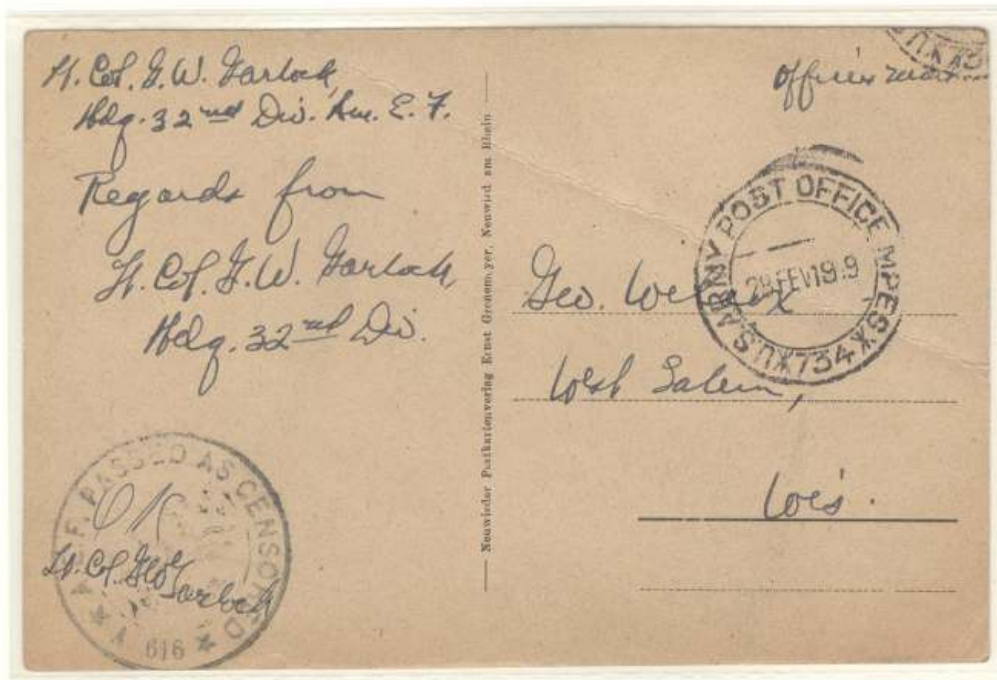 Lt. Col. G.W. Garlock,
Hdq. 32nd Div. Am. E. F.
Regards from
Lt. Col. G.W. Garlock
Hdq. 32nd Div.
A.E.F. PASSED AS CENSORED
OK
Lt. Col. Geo Garlock
A
616
Neuwieder Postkartenverlag Ernst Grenemeyer, Neuwied am Rhein
Officers mail
U.S. ARMY POST OFFICE MPES
734
Geo.
West Salem,
Wis.